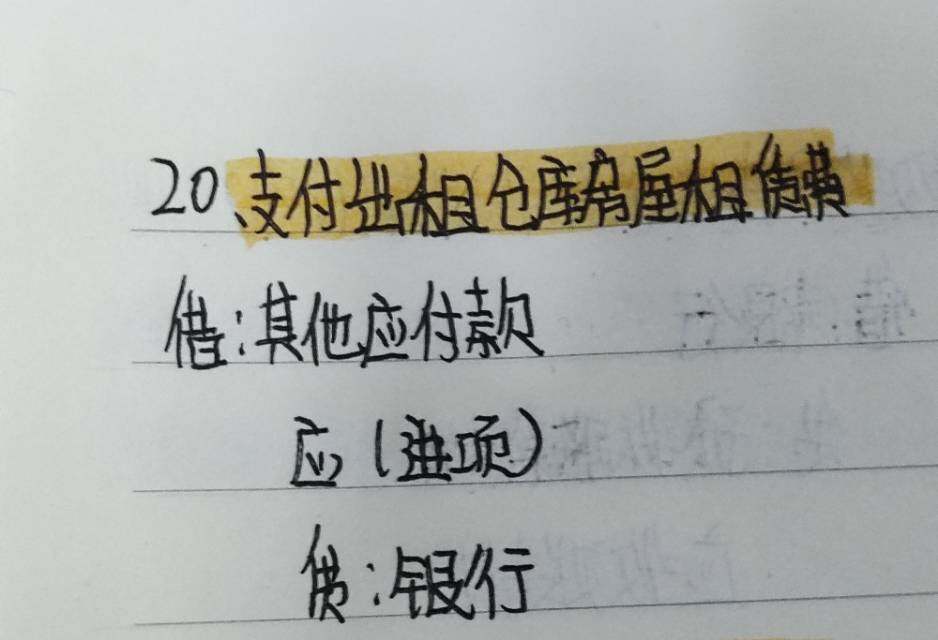 20支付出租仓库房屋租赁费
借:其他应付款
应(进项)
贷:银行